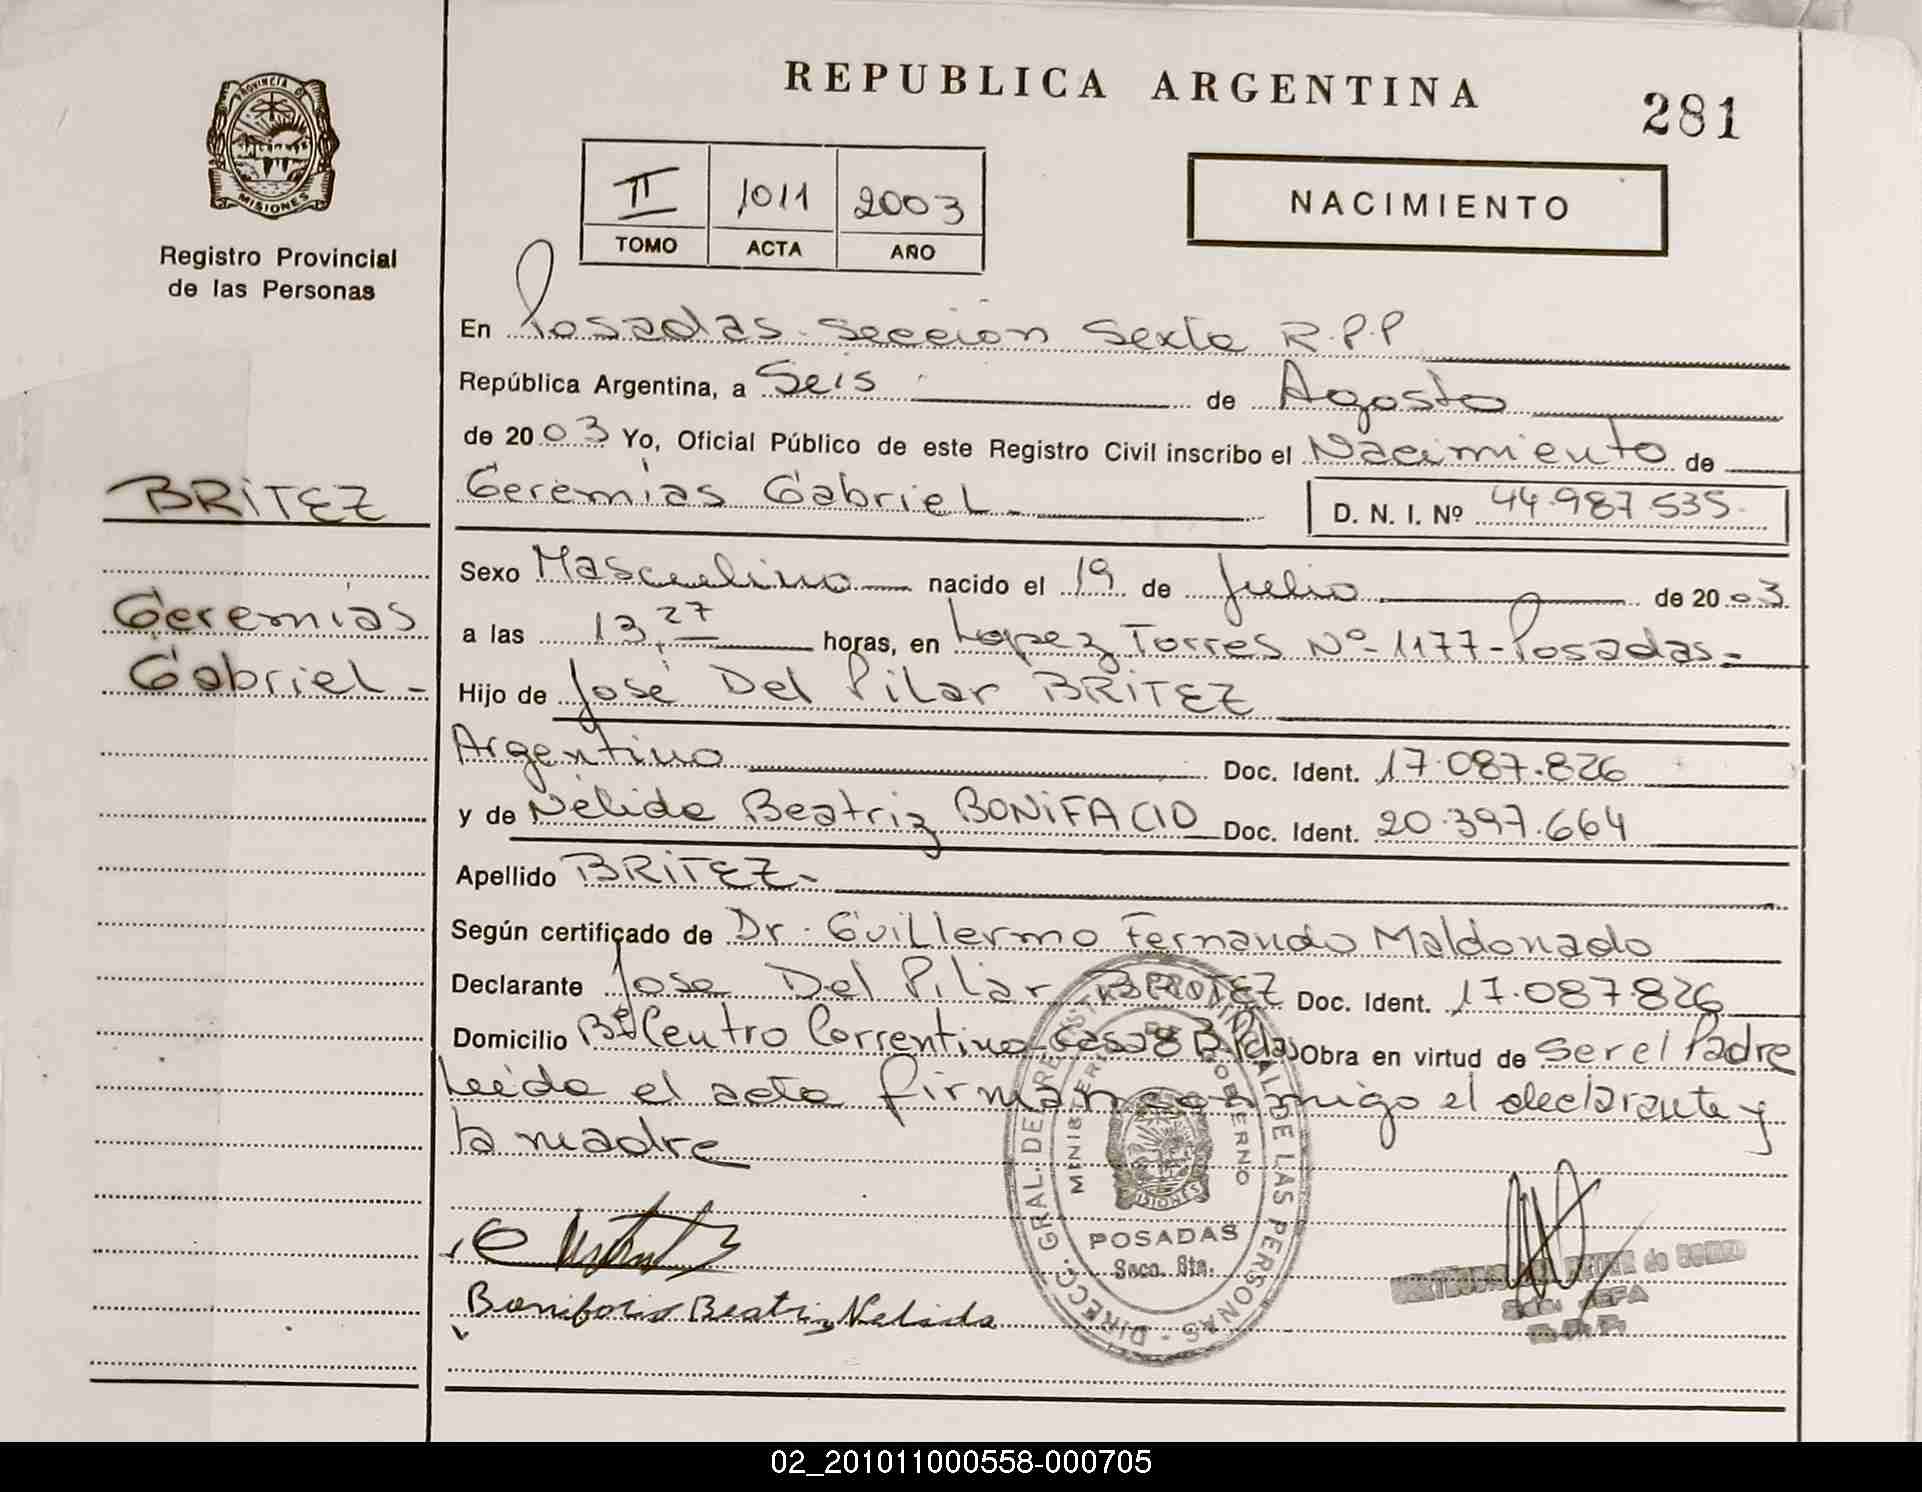 REPUBLICA ARGENTINA
281
PROVINCIA D
MISIONES
Registro Provincial
de las Personas
II 1011 2003
TOMO ACTA AÑO
NACIMIENTO
En Posadas Sección Sexta R.P.P
República Argentina, a Seis de Agosto
de 2003 Yo, Oficial Público de este Registro Civil inscribo el Nacimiento de
Geremías Gabriel
D. N. I. Nº 44.987.535
BRITEZ
Geremías
Gabriel
Sexo Masculino nacido el 19 de Julio de 2003
a las 13,27 horas, en Lopez Torres Nº 1177-Posadas
Hijo de José Del Pilar BRITEZ
Argentino Doc. Ident. 17.087.826
y de Nélida Beatriz BONIFACIO Doc. Ident. 20.397.664
Apellido BRITEZ
Según certificado de Dr. Guillermo Fernando Maldonado
Declarante Jose Del Pilar BRITEZ Doc. Ident. 17.087.826
Domicilio Bº Centro Correntino Casa 8 Obra en virtud de Ser el Padre
Leída el acta firman conmigo el declarante y
la madre
Bonifacio Beatriz Nelida
DIRECC. GRAL. DE REGISTRO PROVINCIAL DE LAS PERSONAS
MINISTERIO DE GOBIERNO
MISIONES
POSADAS
Secc. 6ta.
JEFA
R.P.P.
02_201011000558-000705